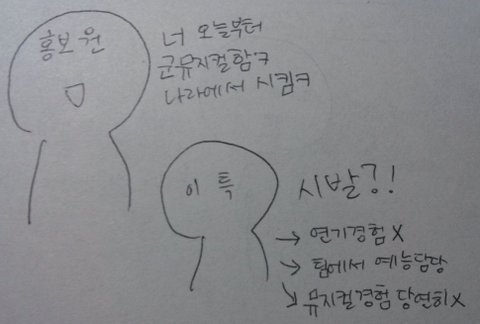 홍보원
너 오늘부터
군뮤지컬함ㅋ
나라에서 시킴ㅋ
이특
시발?!
→ 연기경험 X
→ 팀에서 예능담당
↘ 뮤지컬경험 당연히 X